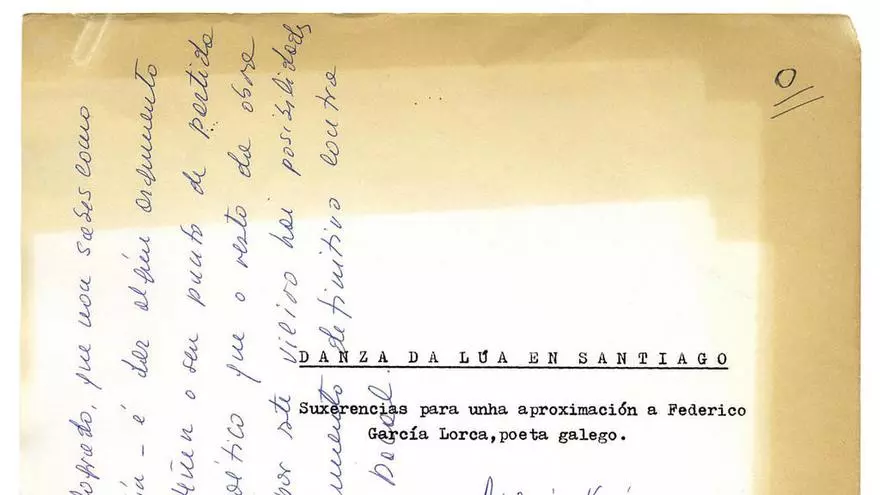 O
DANZA DA LÚA EN SANTIAGO
Suxerencias para unha aproximación a Federico
García Lorca,poeta galego.
que non sabes como
é dar algún argumento
o seu punto de partida
que o resto da obra
por este vieiro hai posibilidades
definitivo contra